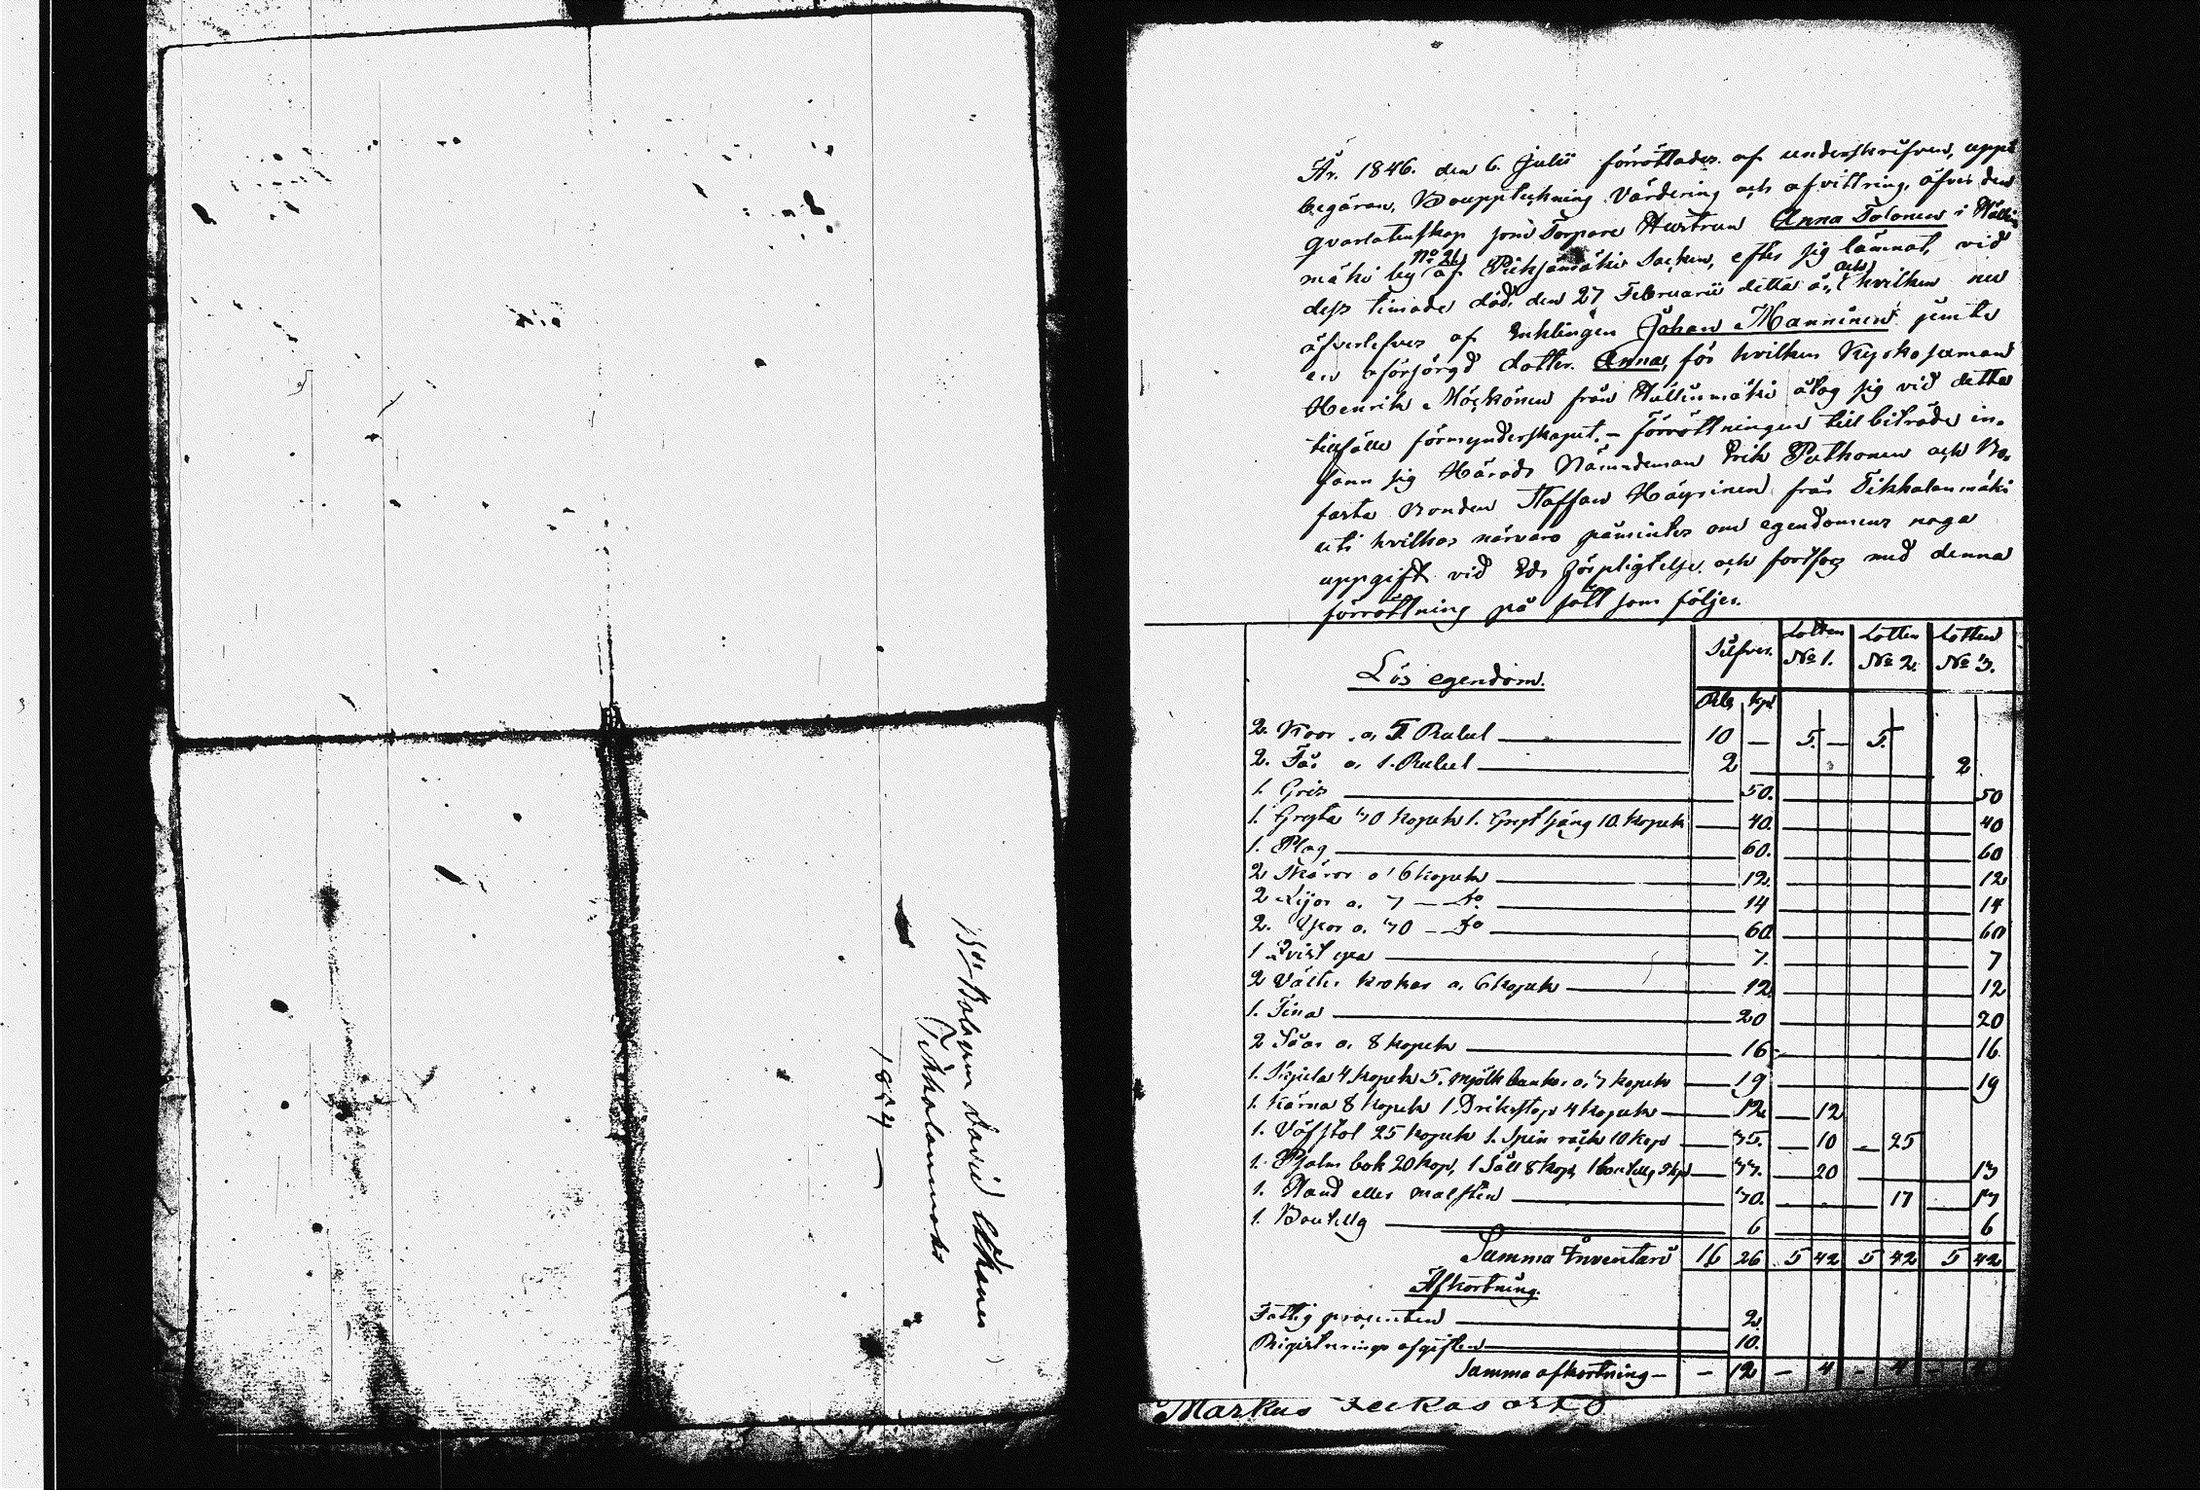 Bde Bolagsm David
Tikkalanmäki
1854
År 1846. den 6. Julii förrättades af underskrifven, uppå
begäran, Bouppteckning Värdering och afvittring, öfver den
qvarlåtenskap som Torpare Hustrun Anna Tolonen i
mäki by No 2 af Pieksämäki Socken, efter sig lämnat, vid
dess timade död den 27 Februarii detta år, och hvilken nu
öfverlefves af Enklingen Johan Manninen jemte
en oförsörgd dotter Anna, för hvilken Kyrko
Henrik från Hällinmäki åtog sig vid detta
tillfälle förmynderskapet. – Förrättningen till biträde in-
fann sig Härads Nämndeman Erik Puthonen och Bo-
fasta Bonden Staffan Häyrinen från Tikkalanmäki
uti hvilkas närvaro påmintes om egendomens noga
uppgift vid Eds förpligtelse och fortsogs med denna
förrättning på sätt som följer.
Lös egendom. Silfver. Lotten No 1. Lotten No 2. Lotten No 3.
Rbl kop
2. Koor a 5 Rubel 10 — 5. — 5.
2. Får a 1. Rubel 2 2
1. Gris 50. 50
1. Gryta 30 kopek 1. Gryt säng 10. kopek 40. 40
1. Plog 60. 60
2 Skäror a 6 kopek 12. 12
2 Lijor a. 7 — do 14 14
2. Yxor a. 30 — do 60 60
1 Qvist yxa 7. 7
2 krokar a. 6 kopek 12 12
1. Tina 20 20
2 Såar a. 8 kopek 16 16
1. 4 kopek 5. mjölk bunkar a. 3 kopek 19 19
1. Kärna 8 kopek 1 Drikstop 4 kopek 12 — 12
1. Väfstol 25 kopek 1. Spin råck 10 kop 35. — 10 — 25
1. Psalm bok 20 kop, 1 Såll 8 kop, 1 33. — 20 13
1. Hand eller malsten 30. 17 13
1. Boutelg 6 6
Summa Inventarii 16 26 5 42 5 42 5 42
Afkortning.
Fattig procenten 2.
Registrerings afgiften 10.
Summa afkortning — — 12 — 4 — 4 —
Markus